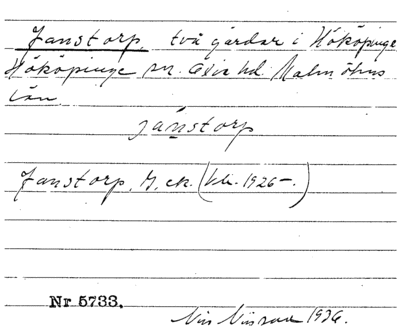 Janstorp, två gårdar i Hököpinge
Hököpinge sn. Oxie hd. Malmöhus
län.
jánstorp
Janstorp, G. ek. (bli. 1926–.)
Nr 5733.
Nils Nilsson 1936.